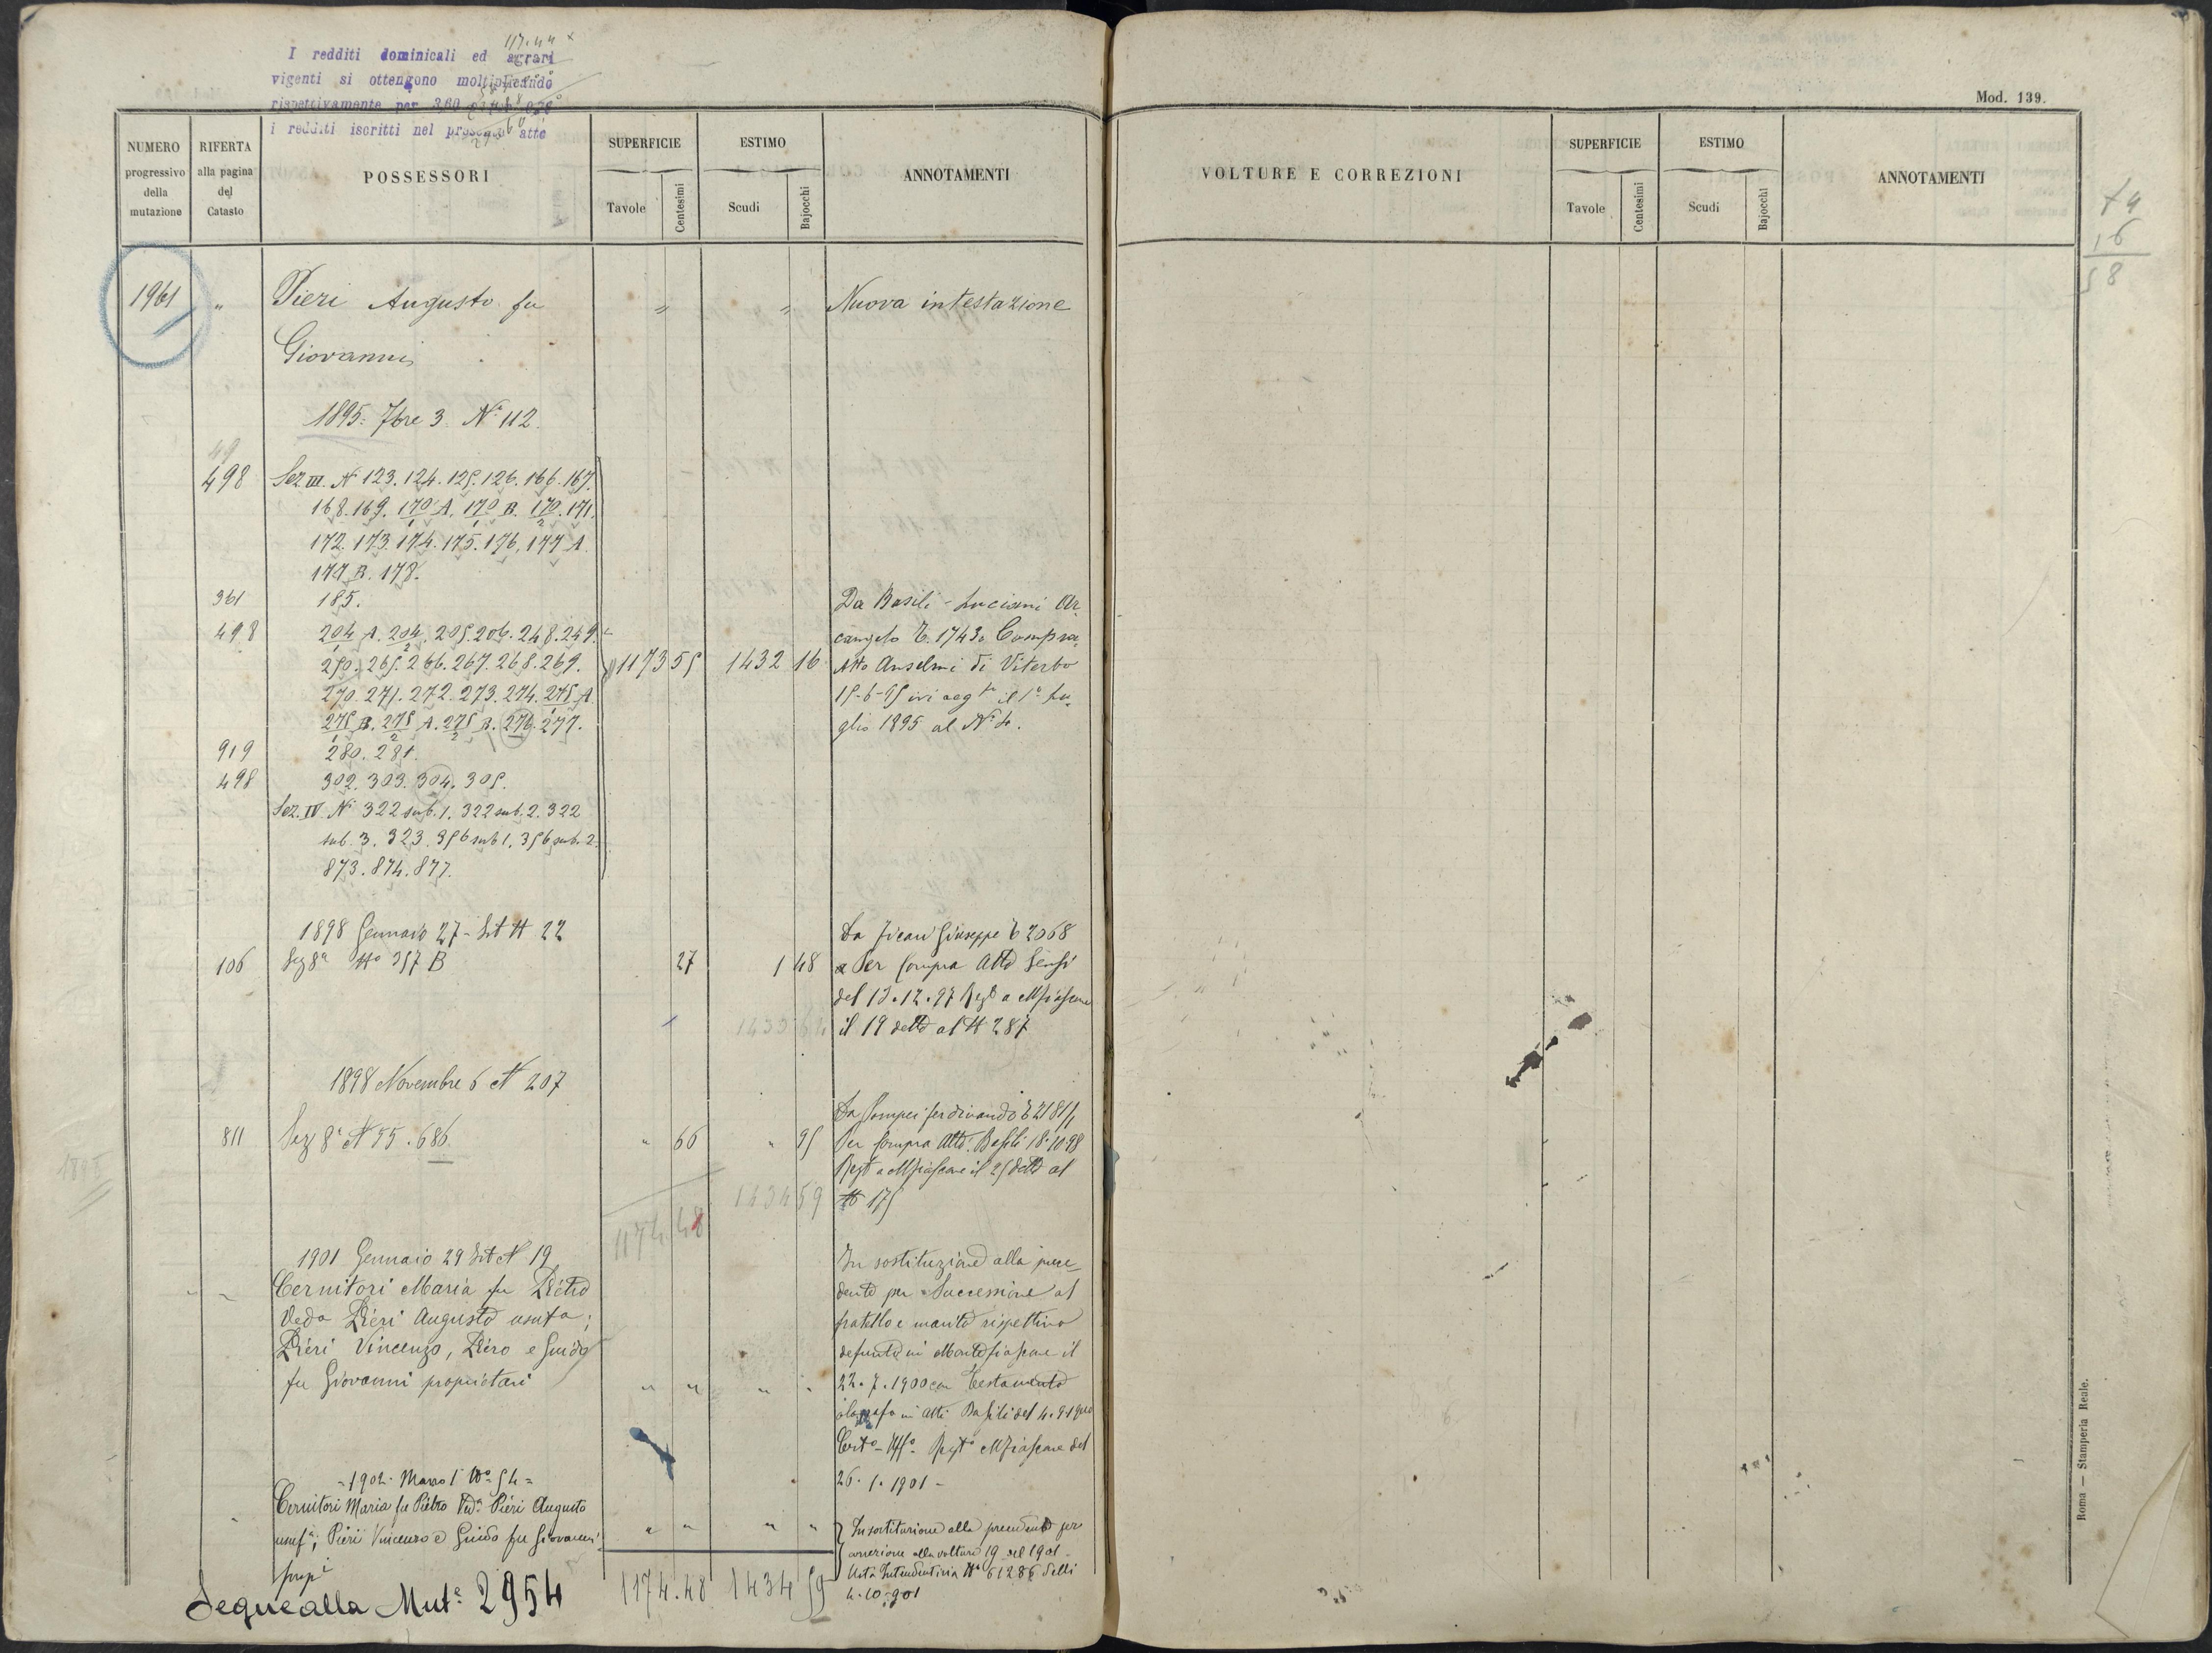 117.44
I redditi dominicali ed agrari
vigenti si ottengono moltiplicando
rispettivamente per 360
i redditi iscritti nel atto
Mod. 139.
NUMERO progressivo della mutazione
RIFERTA alla pagina del Catasto
POSSESSORI
SUPERFICIE
Tavole Centesimi
ESTIMO
Scudi Bajocchi
ANNOTAMENTI
VOLTURE E CORREZIONI
SUPERFICIE
Tavole Centesimi
ESTIMO
Scudi Bajocchi
ANNOTAMENTI
1961 " Pieri Augusto fu " " Nuova intestazione
Giovanni
1895. 7bre 3. N° 112.
49
498 Sez III. N 123. 124. 125. 126. 166. 167.
168. 169. 170/1 A. 170/1 B. 170/2. 171.
172. 173. 174. 175. 176. 177 A.
177 B. 178.
361 185.
498 204/1 A. 204/2. 205. 206. 248. 249.
250. 265. 266. 267. 268. 269. 1173 55 1432 16
270. 271. 272. 273. 274. 275/1 A
275/1 B. 275/2 A. 275/2 B. 276. 277.
919 280. 281.
498 302. 303. 304. 305.
Sez. IV. N 322 sub. 1. 322 sub. 2. 322
sub. 3. 323. 356 sub 1. 356 sub. 2.
873. 874. 877.
Da Basili - Luciani Ar
cangelo T. 1743. Compra
Atto Anselmi di Viterbo
15-6-95 ivi il 1° Lu
glio 1895 al N° 4.
1898 Gennaio 27 - N 22
106 Sez 8a No 357 B 27 1 48
Da Giuseppe 2068
Per Compra Atto Sensi
del 13.12.97 Regto a Mfiascone
il 19 detto al N 287
1433 64
1898 Novembre 6 N 207
811 Sez 8a N 55. 686 " 66 " 95
Da Pompei Ferdinando 2181/1
Per Compra Atto Basili 18.10.98
Regto a Mfiascone il 25 detto al
N 175
1895
1434 59
1174 48
1901 Gennaio 29 N 19
Cernitori Maria fu Pietro
Veda Pieri Augusto usufa;
Pieri Vincenzo, Piero e Guido
fu Giovanni proprietari " " " "
In sostituzione alla prece
dente per Successione al
fratello e marito rispettivo
defunto in Montefiascone il
22.7.1900 con Testamento
olografo in atti Basili del 4.9
Certo Uffo Regto Mfiascone del
26.1.1901 -
- 1902. Marzo 1 No 54 =
Cernitori Maria fu Pietro Veda Pieri Augusto
usufa; Pieri Vincenzo e Guido fu Giovanni " " " "
propi
In sostituzione alla precedente per
correzione alla voltura 19 del 1901
Nota Intendentizia No 61286 delli
4.10.901
Segue alla Muta 2954 1174.48 1434 59
74
16
58
Roma — Stamperia Reale.